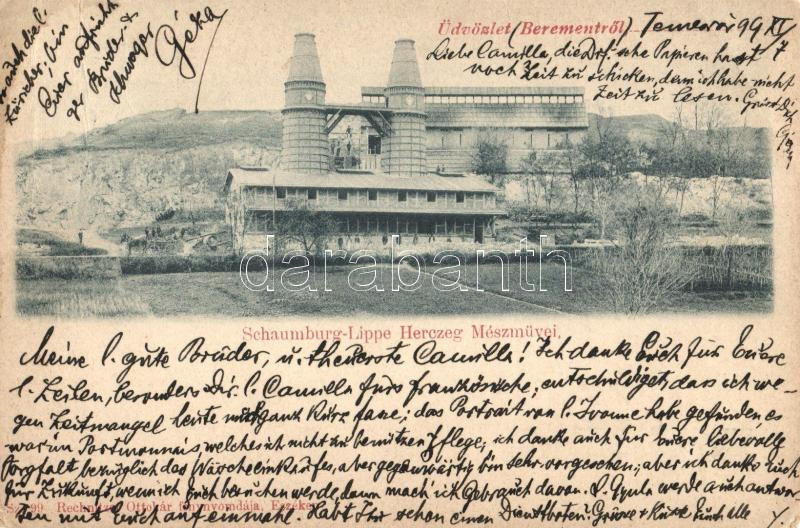 Üdvözlet (Berementről) Temesvár 99 XI/7
Liebe Camilla, die Dir. sehe Papieren hast
noch Zeit zu schicken, denn ich habe nicht
Zeit zu lesen.
Eier
Bruder &
Schwager
Géza
darabanth.com
Schaumburg-Lippe Herczeg Mészművei.
Meine l. gute Brüder, u. theuerste Camilla! Ich danke Euch für Euere
l. Zeilen, besonders Dir l. Camilla fürs französische; entschuldiget, dass ich we-
gen Zeitmangel heute nur ganz kurz fasse; das Portrait von l. Ivonne habe gefunden, es
war im Portmonnais welches ich nicht zu benützen pflege; ich danke auch für Euere liebevolle
Sorgfalt bezüglich das Wäscheeinkaufes, aber gegenwärtig bin sehr vorgesehen; aber ich danke Euch
für Zukunft, wenn ich Euch besuchen werde, dann mach ich Gebrauch davon. L. Gyula werde auch antwor-
Sz. 99. Rechnitzer Ottokár fénynyomdája, Eszék.
ten mit Euch auf einmahl. Habt Ihr schon einen Dienstboten? Grüsse & Küsse Euch alle